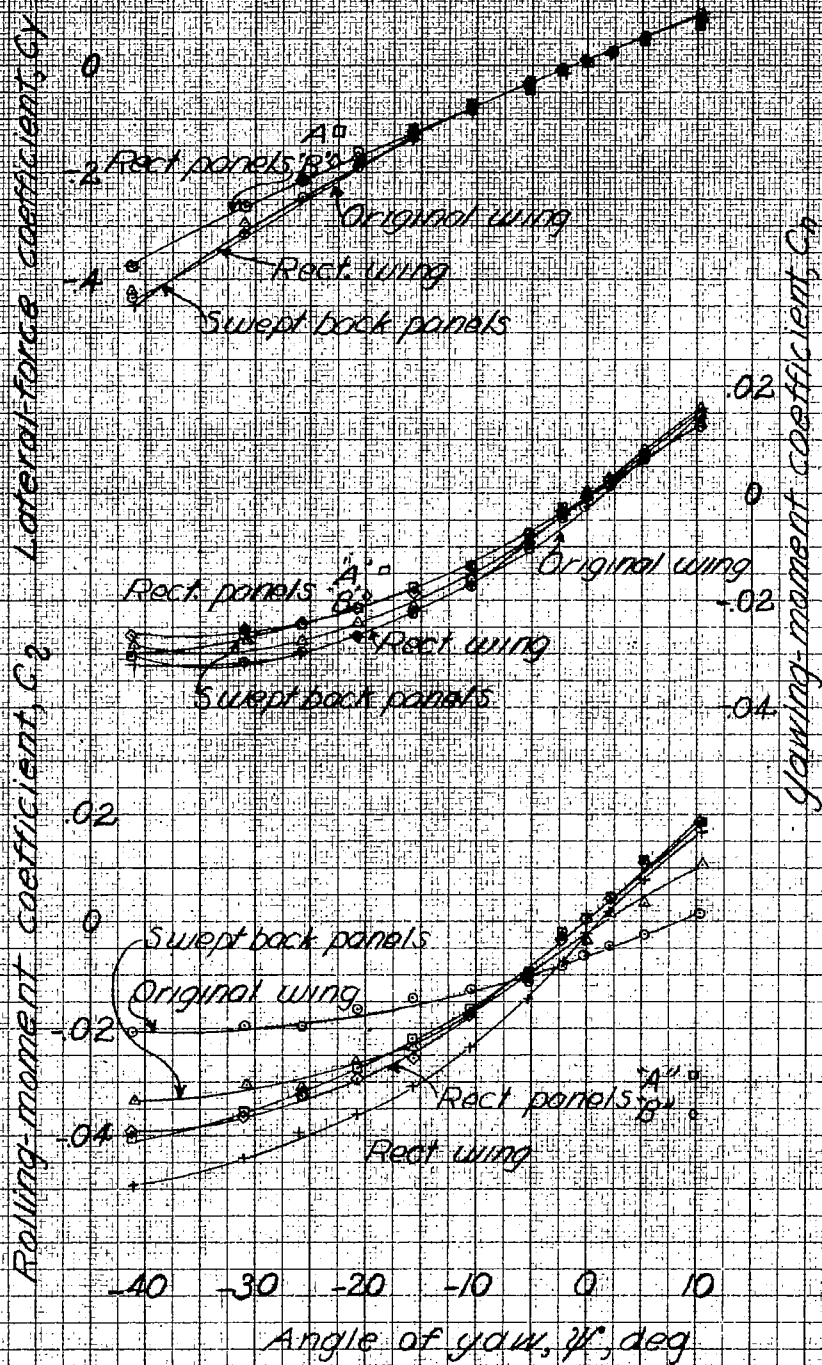 Lateral-force coefficient, Cy
0
-.2
-.4
A
Rect panels, "B"
Original wing
Rect. wing
Swept back panels
yawing-moment coefficient, Cn
.02
0
-.02
-.04
Original wing
Rect. panels "A"
"B"
Rect wing
Swept back panels
Rolling-moment coefficient, C2
.02
0
-.02
-.04
Swept back panels
Original wing
Rect panels "A"
"B"
Rect wing
-40 -30 -20 -10 0 10
Angle of yaw, ψ, deg